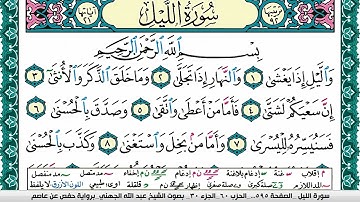 سُورَةُ اللَّيْلِ
بِسْمِ اللَّهِ الرَّحْمَٰنِ الرَّحِيمِ
وَاللَّيْلِ إِذَا يَغْشَىٰ ١ وَالنَّهَارِ إِذَا تَجَلَّىٰ ٢ وَمَا خَلَقَ الذَّكَرَ وَالْأُنثَىٰ ٣
إِنَّ سَعْيَكُمْ لَشَتَّىٰ ٤ فَأَمَّا مَنْ أَعْطَىٰ وَاتَّقَىٰ ٥ وَصَدَّقَ بِالْحُسْنَىٰ ٦
فَسَنُيَسِّرُهُ لِلْيُسْرَىٰ ٧ وَأَمَّا مَن بَخِلَ وَاسْتَغْنَىٰ ٨ وَكَذَّبَ بِالْحُسْنَىٰ
سورة الليل . الصفحة ٥٩٥ . الحزب ٦٠ . الجزء ٣٠ . بصوت الشيخ عبد الله الجهني . برواية حفص عن عاصم